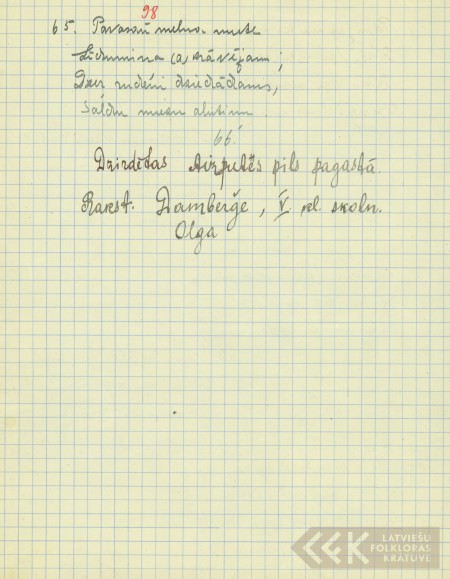 98
65. Pavasarī melna mute
Līdumiņa (a)rāvējam;
Dzer rudeni dziedādams,
Saldu miežu alutiņu.
66.
Dzirdētas Aizputēs pils pagastā
Rakst. Damberģe, V kl. skoln.
Olga
LATVIEŠU
FOLKLORAS
KRĀTUVE